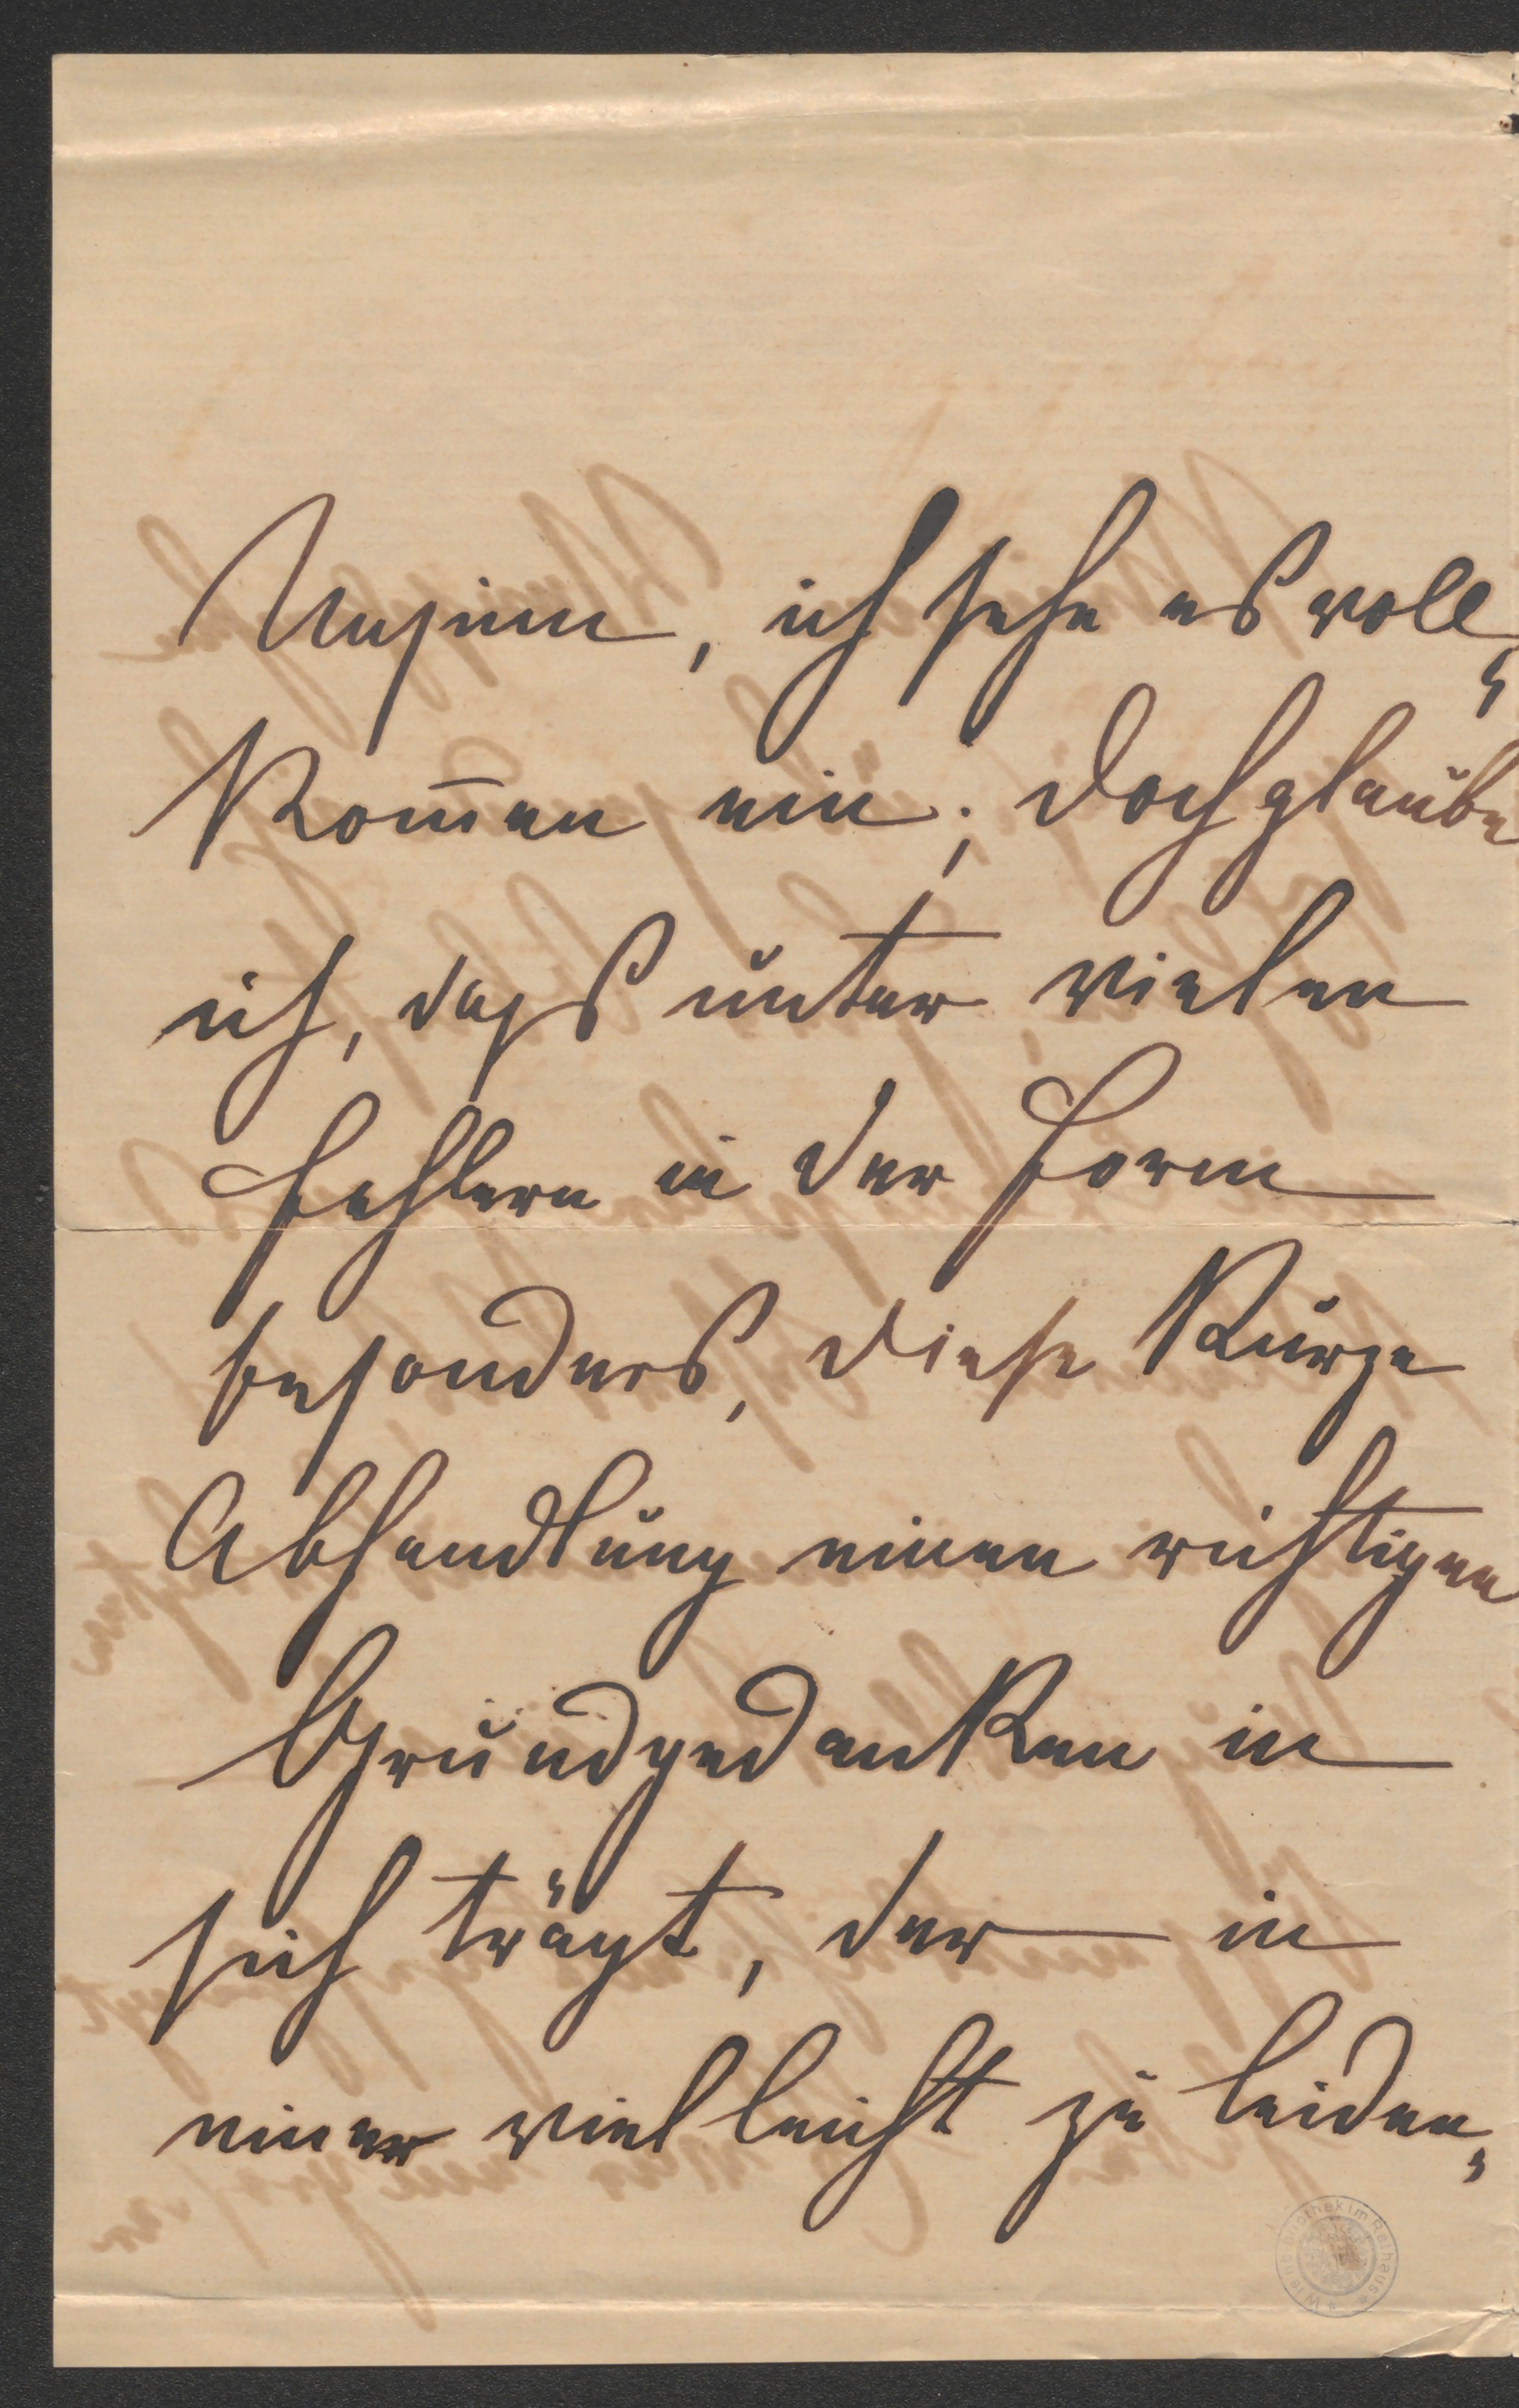 Unsinn, ich sehe es voll„
kom̄en ein; doch glaube
ich, dass unter vielen
Fehlern in der Form
besonders, diese kurze
Abhandlung einen richtigen
Grundgedanken in
sich trägt, der in
einer vielleicht zu leiden„
Wienbibliothek im Rathaus